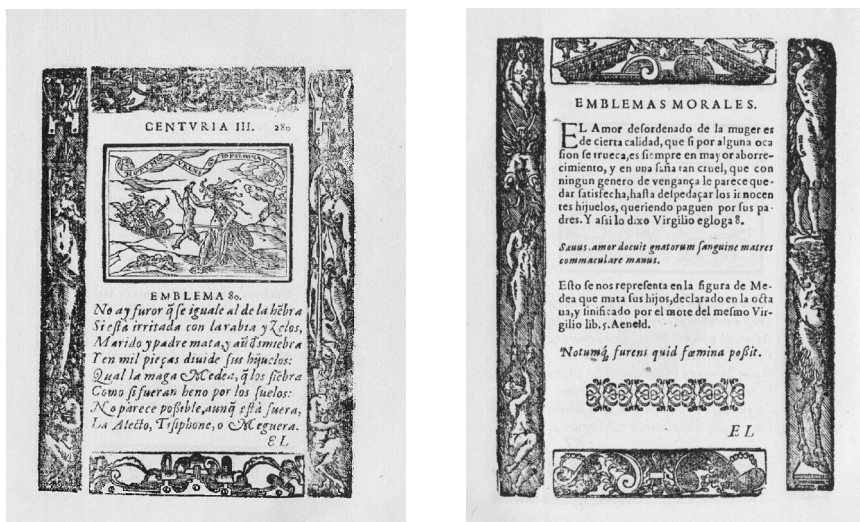 CENTVRIA III. 280
EMBLEMA 80.
No ay furor q̃ se iguale al de la hẽbra
Si està irritada con la rabia y zelos,
Marido y padre mata, y aũ desmiebra
Y en mil pieças diuide sus hijuelos:
Qual la maga Medea, q̃ los siẽbra
Como si fueran heno por los suelos:
No parece poßible, aunq̃ està fuera,
La Alecto, Tisiphone, o Meguera.
EL
EMBLEMAS MORALES.
EL Amor desordenado de la muger es
de cierta calidad, que si por alguna oca
sion se trueca, es siempre en mayor aborre-
cimiento, y en una saña tan cruel, que con
ningun genero de vengança le parece que-
dar satisfecha, hasta despedaçar los innocen
tes hijuelos, queriendo paguen por sus pa-
dres. Y assi lo dixo Virgilio egloga 8.
Sæuus amor docuit gnatorum sanguine matres
commaculare manus.
Esto se nos representa en la figura de Me-
dea que mata sus hijos, declarado en la octa
ua, y sinificado por el mote del mesmo Vir-
gilio lib. 5. Aeneid.
Notumq́; furens quid fœmina poßit.
EL